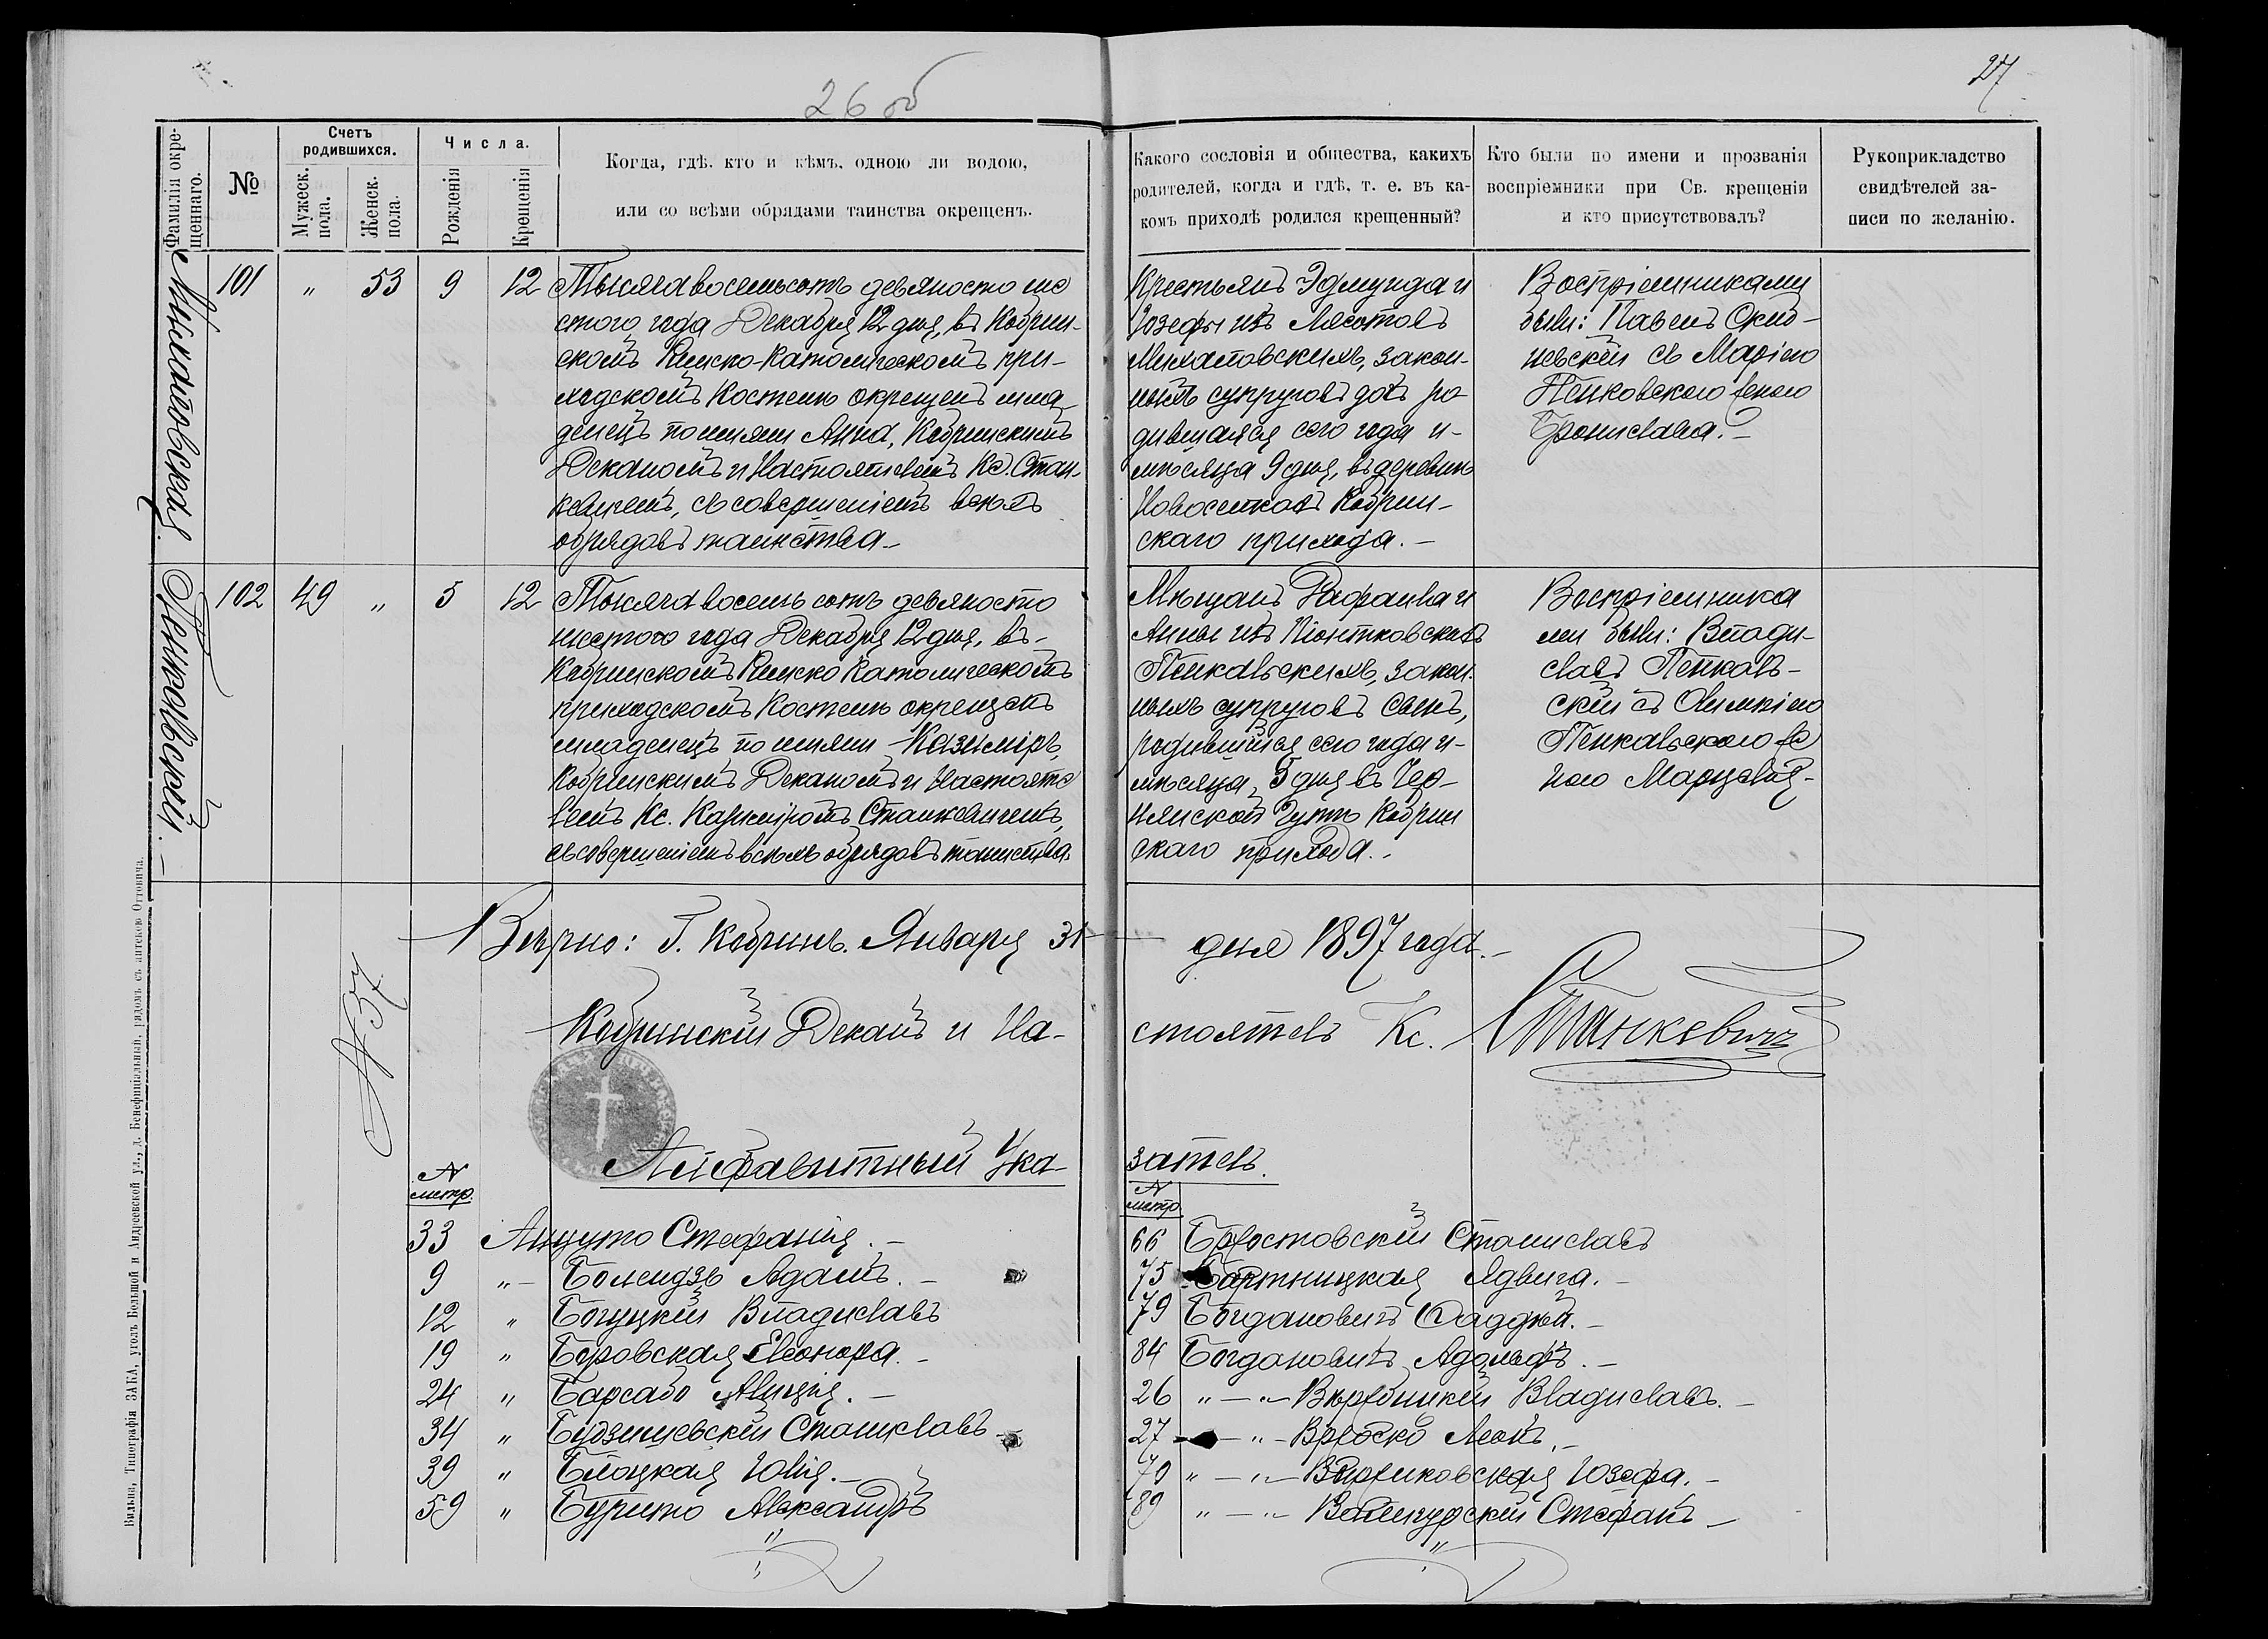 26 об
27
Фамилія окре-
щеннаго.
№
Счетъ
родившихся.
Мужеск.
пола.
Женск.
пола.
Числа.
Рожденія
Крещенія
Когда, гдѣ, кто и кѣмъ, одною ли водою,
или со всѣми обрядами таинства окрещенъ.
Какого сословія и общества, какихъ
родителей, когда и гдѣ, т. е. въ ка-
комъ приходѣ родился крещенный?
Кто были по имени и прозванія
воспріемники при Св. крещеніи
и кто присутствовалъ?
Рукоприкладство
свидѣтелей за-
писи по желанію.
Михаловская
101 " 53 9 12
Тысяча восемьсотъ девяносто ше
стого года Декабря 12 дня, въ Кобрин-
скомъ Римско-Католическомъ при-
ходскомъ Костелѣ окрещенъ мла
денецъ по имени Анна, Кобринскимъ
Деканомъ и Настоятелемъ Кс. Стан-
кевичемъ, съ совершеніемъ всѣхъ
обрядовъ таинства
Крестьянъ Эдмунда и
Іозефы изъ
Михаловскихъ, закон-
ныхъ супруговъ дочь ро-
дившаяся сего года и
мѣсяца 9 дня, въ деревнѣ
Новоселкахъ Кобрин-
скаго прихода.
Воспріемниками
были: Павелъ
съ Маріею
Пѣнковскою женою
Бронислава.
Пѣнковскій.
102 49 " 5 12
Тысяча восемь сотъ девяносто
шестого года Декабря 12 дня, въ
Кобринскомъ Римско Католическомъ
приходскомъ Костелѣ окрещенъ
младенецъ по имени Казиміръ,
Кобринскимъ Деканомъ и Настояте
лемъ Кс. Казиміромъ Станкевичемъ,
съ совершеніемъ всѣхъ обрядовъ таинства
Мѣщанъ Рафаила и
Анны изъ Піонтковскихъ
Пѣнковскихъ, закон
ныхъ супруговъ сынъ,
родившійся сего года и
мѣсяца, 5 дня въ Чер-
нянской Гутѣ Кобрин
скаго прихода.
Воспріемника
ми были: Влади-
славъ Пѣнков-
скій съ Олимпіею
Пѣнковскою же
ною
Вѣрно: Г. Кобринъ. Января 31
дня 1897 года.
Кобринскій Деканъ и На-
стоятель Кс. Станкевичъ
№ 37
Алфавитный Ука-
затель.
№
метр.
33 Анцуто Стефанія.
9 " Болендзь Адамъ.
12 " Богуцкій Владиславъ
19 " Боровская Елеонора.
24 " Барсабо
34 " Будзишевскій Станиславъ
39 " Блоцкая Юлія.
59 " Александръ
№
метр.
66 Бржостовскій Станиславъ
75 Бартницкая Ядвига.
79 Богдановичъ Фаддей.
84 Богдановичъ Адольфъ.
26 " Владиславъ.
27 " Леонъ.
70 " Юзефа.
89 " Стефанъ
Вильна, Типографія ЗАКА, уголъ Большой и Андреевской ул., д. Бенефиціальный, рядомъ съ аптекою Оттовича.